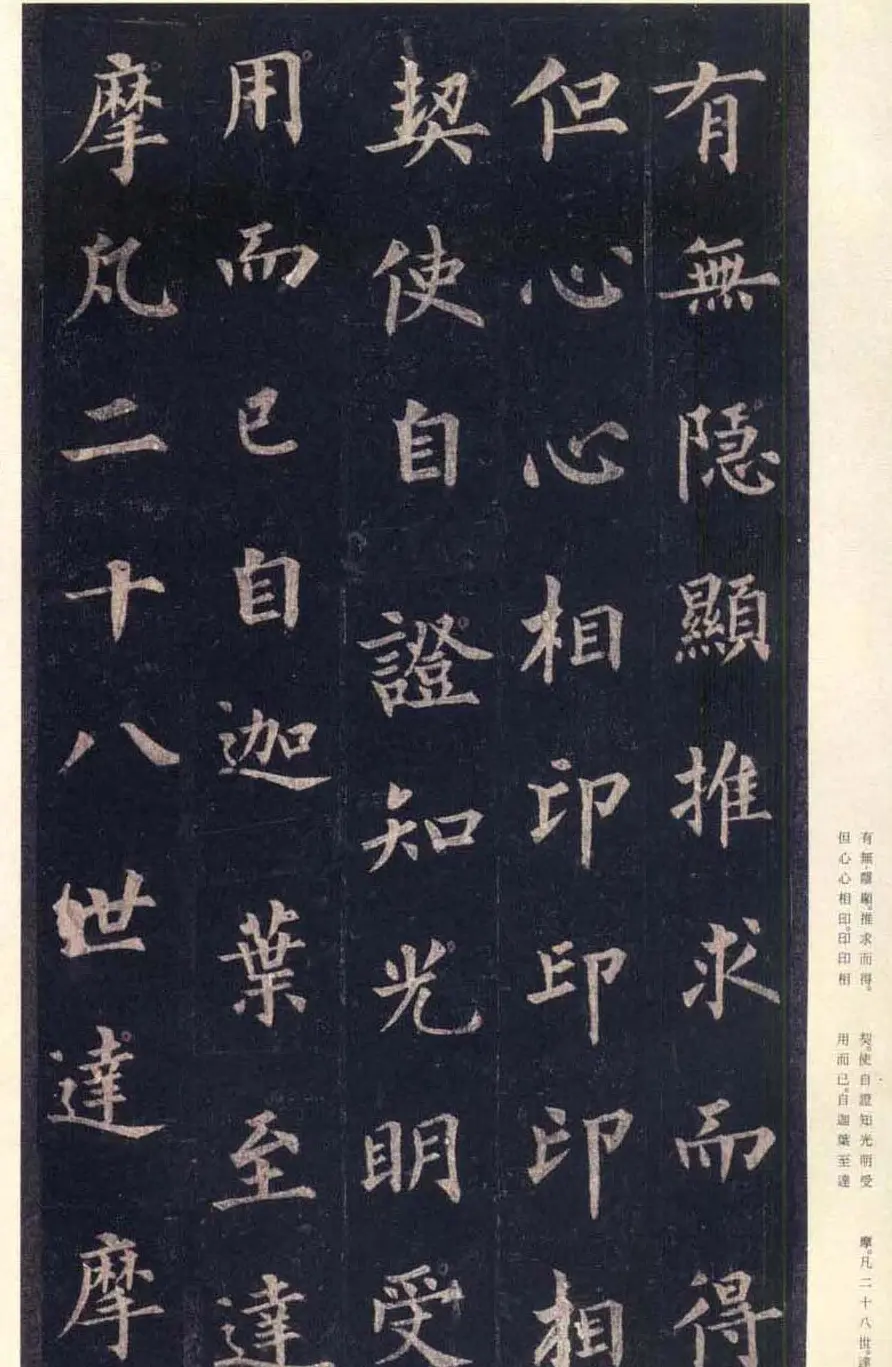 有無隱顯推求而得
但心心相印印印相
契使自證知光明受
用而已自迦葉至達
摩凡二十八世達摩
有無隱顯。推求而得。
但心心相印。印印相
契。使自證知光明受
用而已。自迦葉至達
摩。凡二十八世。達